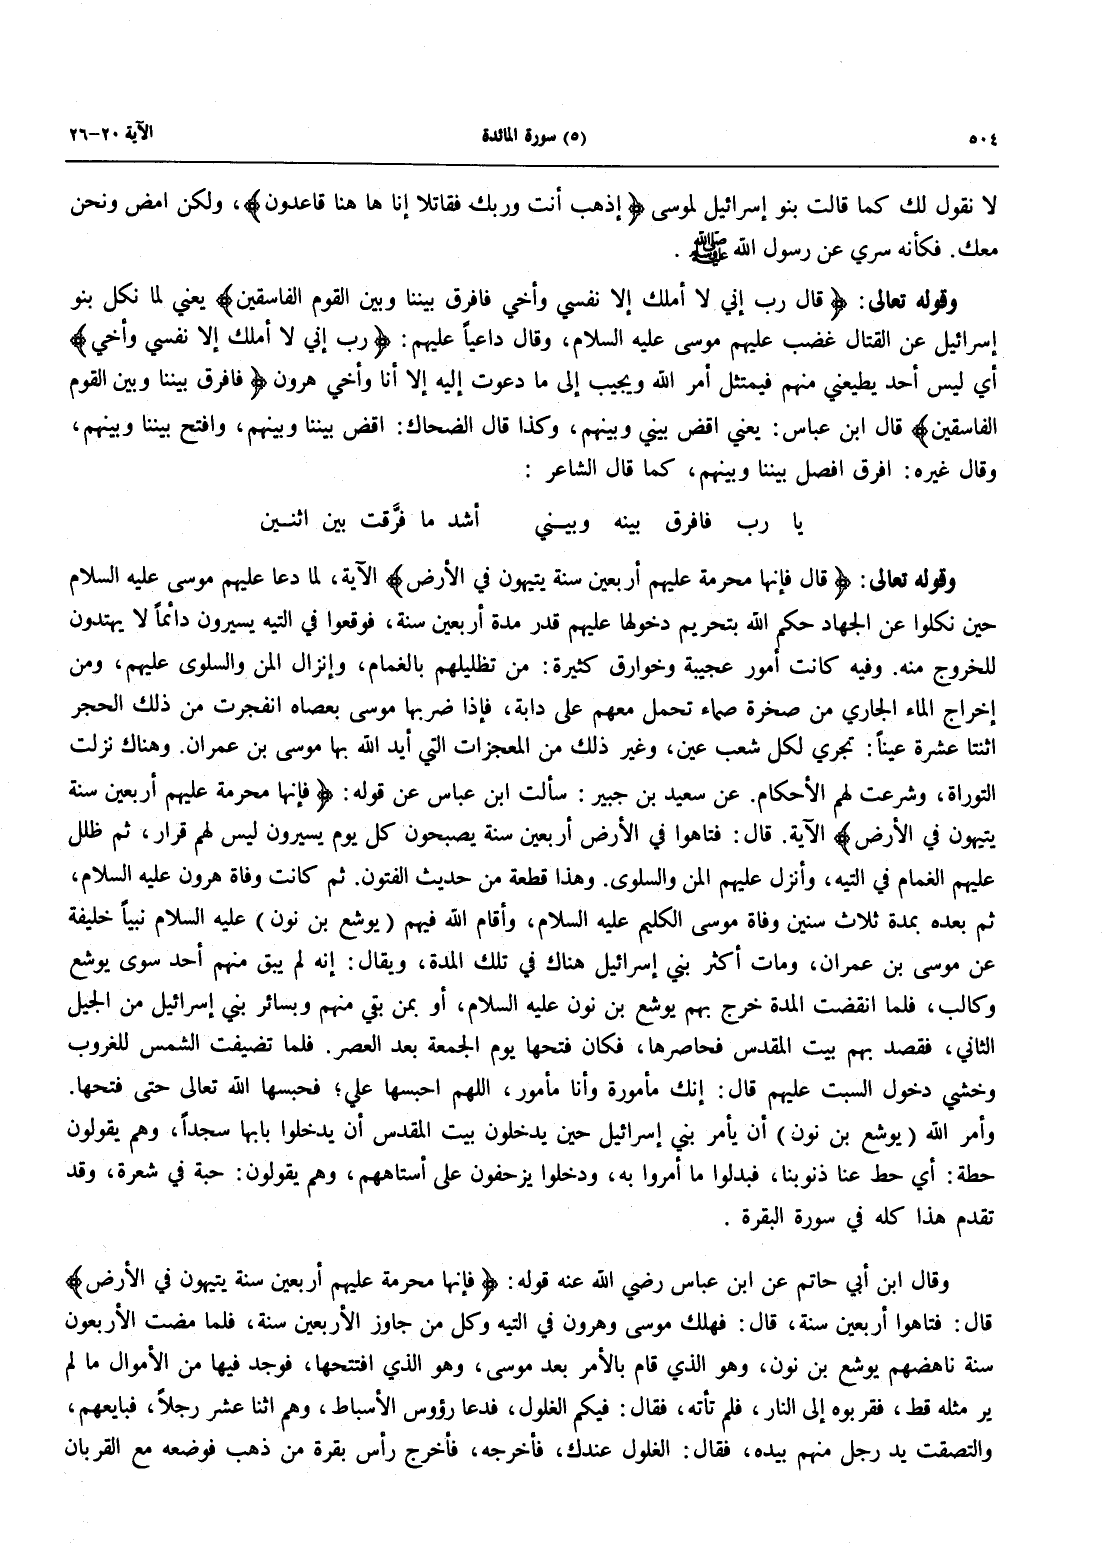 ٥٠٤ (٥) سورة المائدة الآية ٢٠-٢٦
لا نقول لك كما قالت بنو إسرائيل لموسى ﴿ إذهب أنت وربك فقاتلا إنا ها هنا قاعدون﴾، ولكن امض ونحن
معك. فكأنه سري عن رسول الله ﷺ .
وقوله تعالى: ﴿ قال رب إني لا أملك إلا نفسي وأخي فافرق بيننا وبين القوم الفاسقين﴾ يعني لما نكل بنو
إسرائيل عن القتال غضب عليهم موسى عليه السلام، وقال داعياً عليهم: ﴿ رب إني لا أملك إلا نفسي وأخي﴾
أي ليس أحد يطيعني منهم فيمتثل أمر الله ويجيب إلى ما دعوت إليه إلا أنا وأخي هرون ﴿ فافرق بيننا وبين القوم
الفاسقين﴾ قال ابن عباس: يعني اقض بيني وبينهم، وكذا قال الضحاك: اقض بيننا وبينهم، وافتح بيننا وبينهم،
وقال غيره: افرق افصل بيننا وبينهم، كما قال الشاعر :
يا رب فافرق بينه وبيــني أشد ما فرَّقت بين اثنــين
وقوله تعالى: ﴿ قال فإنها محرمة عليهم أربعين سنة يتيهون في الأرض﴾ الآية، لما دعا عليهم موسى عليه السلام
حين نكلوا عن الجهاد حكم الله بتحريم دخولها عليهم قدر مدة أربعين سنة، فوقعوا في التيه يسيرون دائماً لا يهتدون
للخروج منه. وفيه كانت أمور عجيبة وخوارق كثيرة: من تظليلهم بالغمام، وإنزال المن والسلوى عليهم، ومن
إخراج الماء الجاري من صخرة صماء تحمل معهم على دابة، فإذا ضربها موسى بعصاه انفجرت من ذلك الحجر
اثنتا عشرة عيناً: تجري لكل شعب عين، وغير ذلك من المعجزات التي أيد الله بها موسى بن عمران. وهناك نزلت
التوراة، وشرعت لهم الأحكام. عن سعيد بن جبير : سألت ابن عباس عن قوله: ﴿ فإنها محرمة عليهم أربعين سنة
يتيهون في الأرض﴾ الآية. قال: فتاهوا في الأرض أربعين سنة يصبحون كل يوم يسيرون ليس لهم قرار، ثم ظلل
عليهم الغمام في التيه، وأنزل عليهم المن والسلوى. وهذا قطعة من حديث الفتون. ثم كانت وفاة هرون عليه السلام،
ثم بعده بمدة ثلاث سنين وفاة موسى الكليم عليه السلام، وأقام الله فيهم ( يوشع بن نون ) عليه السلام نبياً خليفة
عن موسى بن عمران، ومات أكثر بني إسرائيل هناك في تلك المدة، ويقال: إنه لم يبق منهم أحد سوى يوشع
وكالب، فلما انقضت المدة خرج بهم يوشع بن نون عليه السلام، أو بمن بقي منهم وبسائر بني إسرائيل من الجيل
الثاني، فقصد بهم بيت المقدس فحاصرها، فكان فتحها يوم الجمعة بعد العصر. فلما تضيفت الشمس للغروب
وخشي دخول السبت عليهم قال: إنك مأمورة وأنا مأمور، اللهم احبسها علي؛ فحبسها الله تعالى حتى فتحها.
وأمر الله ( يوشع بن نون ) أن يأمر بني إسرائيل حين يدخلون بيت المقدس أن يدخلوا بابها سجداً، وهم يقولون
حطة: أي حط عنا ذنوبنا، فبدلوا ما أمروا به، ودخلوا يزحفون على أستاههم، وهم يقولون: حبة في شعرة، وقد
تقدم هذا كله في سورة البقرة .
وقال ابن أبي حاتم عن ابن عباس رضي الله عنه قوله: ﴿ فإنها محرمة عليهم أربعين سنة يتيهون في الأرض﴾
قال: فتاهوا أربعين سنة، قال: فهلك موسى وهرون في التيه وكل من جاوز الأربعين سنة، فلما مضت الأربعون
سنة ناهضهم يوشع بن نون، وهو الذي قام بالأمر بعد موسى، وهو الذي افتتحها، فوجد فيها من الأموال ما لم
ير مثله قط، فقربوه إلى النار، فلم تأته، فقال: فيكم الغلول، فدعا رؤوس الأسباط، وهم اثنا عشر رجلاً، فبايعهم،
والتصقت يد رجل منهم بيده، فقال: الغلول عندك، فأخرجه، فأخرج رأس بقرة من ذهب فوضعه مع القربان